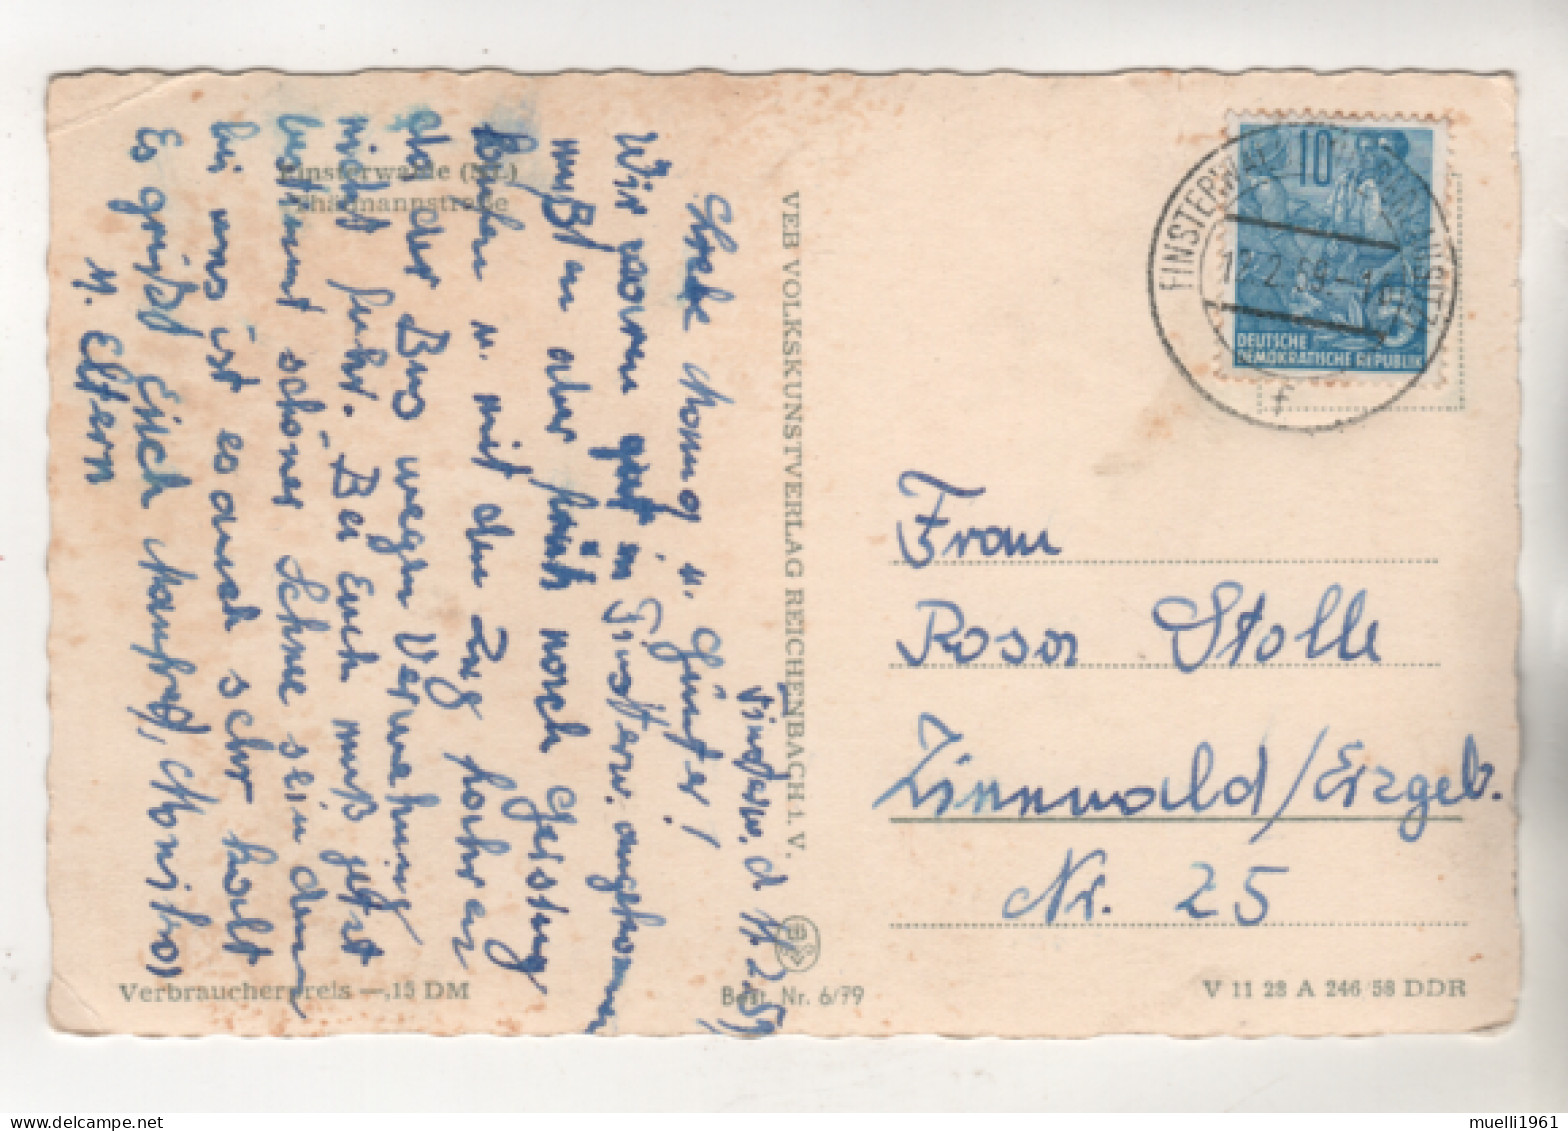 Finsterw. d. 12.2.59
Liebe Mama u. Günter!
Wir waren gut in Finsterw. angekommen
mußten aber früh noch
u. mit dem Zug fahren
da der Bus wegen Verwehung
nicht fuhr. Bei Euch muß jetzt
bestimmt schöner Schnee sein denn
bei uns ist es auch sehr kalt
Es grüßt Euch Manfred, Monika
u. Eltern
Finsterwalde
Verbraucherpreis —,15 DM
VEB VOLKSKUNSTVERLAG REICHENBACH I. V.
Best. Nr. 6/79
V 11 28 A 246/58 DDR
10
DEUTSCHE
DEMOKRATISCHE REPUBLIK
FINSTERWALDE
Frau
Rosa Stolle
Zinnwald/Erzgeb.
Nr. 25
muelli1961